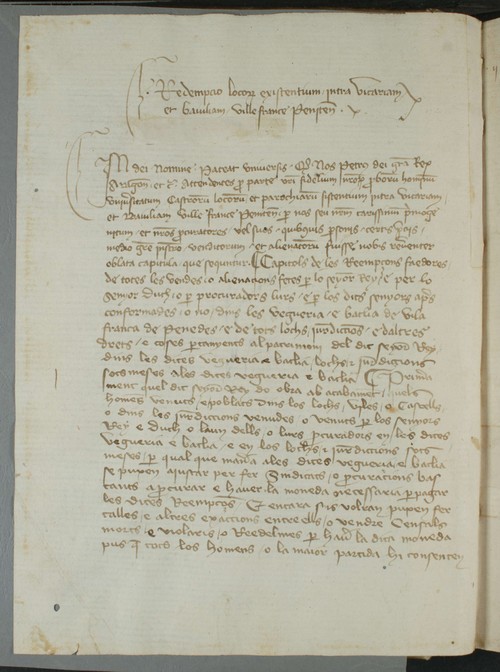 Redempcio locor existentium intra vicariam
et baiuliam ville france Peniten
In dei Nomine Pateat universis Q Nos Petrus dei gra Rex
Aragon et c Attendentes p parte fidelium nror pborum hominum
universitatum Castroru locoru et parochiaru sistentium intra vicariam
et Baiuliam Ville france Peniten p nos seu nrm carissimum pmoge
nitum et nros procuratores vel suos quibusvis psonis certis
modo gre venditorum et alienatoru fuisse nobis reverenter
oblata capitula que sequuntur Capitols de les Reempcons faedores
de totes les vendes o alienacions fetes p lo senyor Rey e per lo
senyor duch o p procuradors lurs e p los dits senyors aps
confermades o no dins les vegueria e batlia de vila
francha de penedes e de tots lochs iurediccions e daltres
drets e coses ptanyents al patrimoni del dit senyor Rey
dins les dites vegueria e batlia lochs e iurediccions
sotsmeses ales dites vegueria e batlia Primera
ment quel dit senyor Rey do obra ab acabament quels
homens venuts e poblats dins los lochs viles o Castells
o dins les iurediccions venudes o venuts p los senyors
Rey e duch o la un dells o lurs pcuradors en les dites
vegueria e batlia e en los lochs e iurediccions sots
meses p qual que mana ales dites vegueria e batlia
se pusquen aiustar per fer Sindicats o pcuracions bas
tants a pcurar e haver la moneda necessaria p pagar
les dites Reempcons E encara sis volran pusquen fer
talles e altres exaccions entre ells o vendre Censals
morts e violaris o Reedelmes p haver la dita moneda
pus tots los homens o la maior partida hi consenten